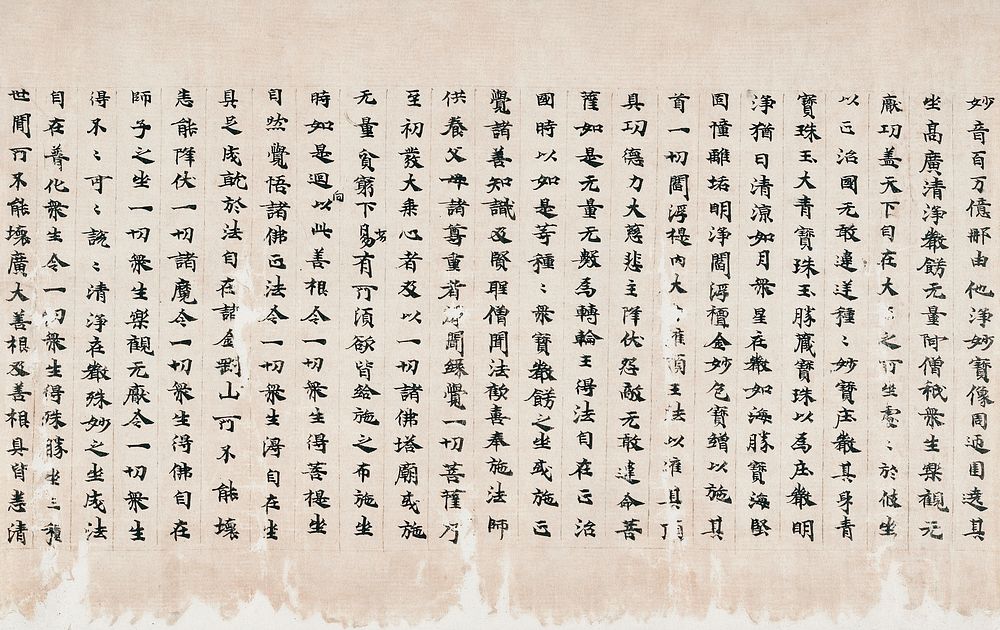 妙音百万億那由他淨妙寶像周迊圍遶其
坐高廣清淨嚴餝无量阿僧祇衆生樂觀无
厭功盖天下自在大之所坐處〻於彼坐
以正治國无敢違逆種〻妙寶庄嚴其身青
寶珠玉大青寶珠玉勝蔵寶珠以爲庄嚴明
淨猶日清涼如月衆星在嚴如海勝寶海堅
固憧離垢明淨閻浮檀金妙色寶繒以施其
首一切閻浮提內大灌頂王法以灌其頂
具功德力大慈悲主降伏怨敵无敢違命菩
薩如是无量无數爲轉輪王得法自在正治
國時以如是等種〻衆寶嚴餝之坐或施正
覺諸善知識及賢聖僧聞法歡喜奉施法師
供養父母諸尊重者聲聞緣覺一切菩薩乃
至初發大乘心者及以一切諸佛塔廟或施
无量貧窮下劣易有所須欲皆給施之布施坐
時如是迴向以此善根令一切衆生得菩提坐
自然覺悟諸佛正法令一切衆生得自在坐
具足成就於法自在諸金剛山所不能壞
恚能降伏一切諸魔令一切衆生得佛自在
師子之坐一切衆生樂觀无厭令一切衆生
得不〻可〻說〻清淨在嚴殊妙之坐成法
自在普化衆生令一切衆生得殊勝坐三種
世間所不能壞廣大善根及善根具皆悉清